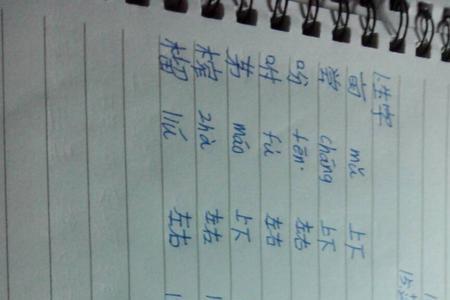 1.生字
亩 mǔ 上下
尝 cháng 上下
吩 fēn 左右
咐 fù 左右
茅 máo 上下
榨 zhà 左右
榴 liú 左右